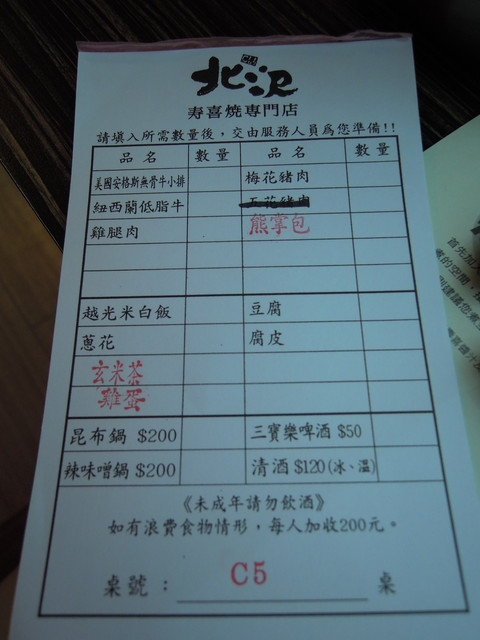 北澤
寿喜燒專門店
請填入所需數量後，交由服務人員為您準備!!
品名 數量 品名 數量
美國安格斯無骨牛小排 梅花豬肉
紐西蘭低脂牛 五花豬肉
雞腿肉 熊掌包
越光米白飯 豆腐
蔥花 腐皮
玄米茶
雞蛋
昆布鍋 $200 三寶樂啤酒 $50
辣味噌鍋 $200 清酒 $120(冰、溫)
《未成年請勿飲酒》
如有浪費食物情形，每人加收200元。
桌號： C5 桌
首先加
的空間